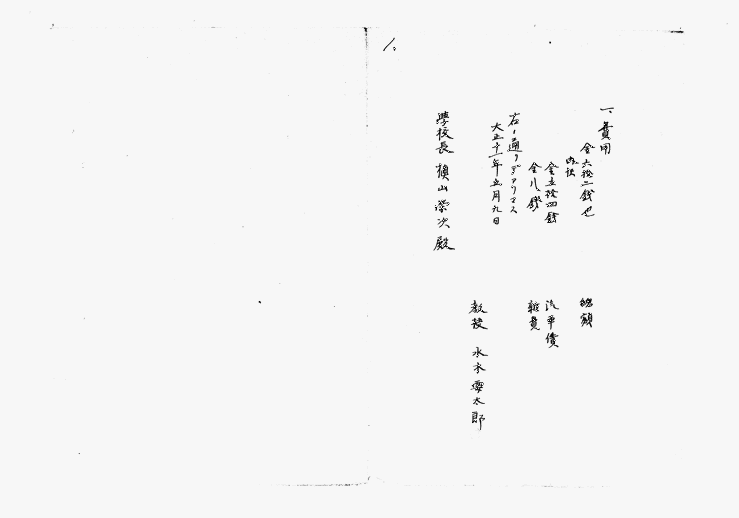 一、費用
金六拾二銭也 総額
内訳
金五拾四銭 汽車賃
金八銭 雑費
右ノ通リデアリマス
大正十一年五月九日
教授 水木要太郎
學校長 槇山榮次殿